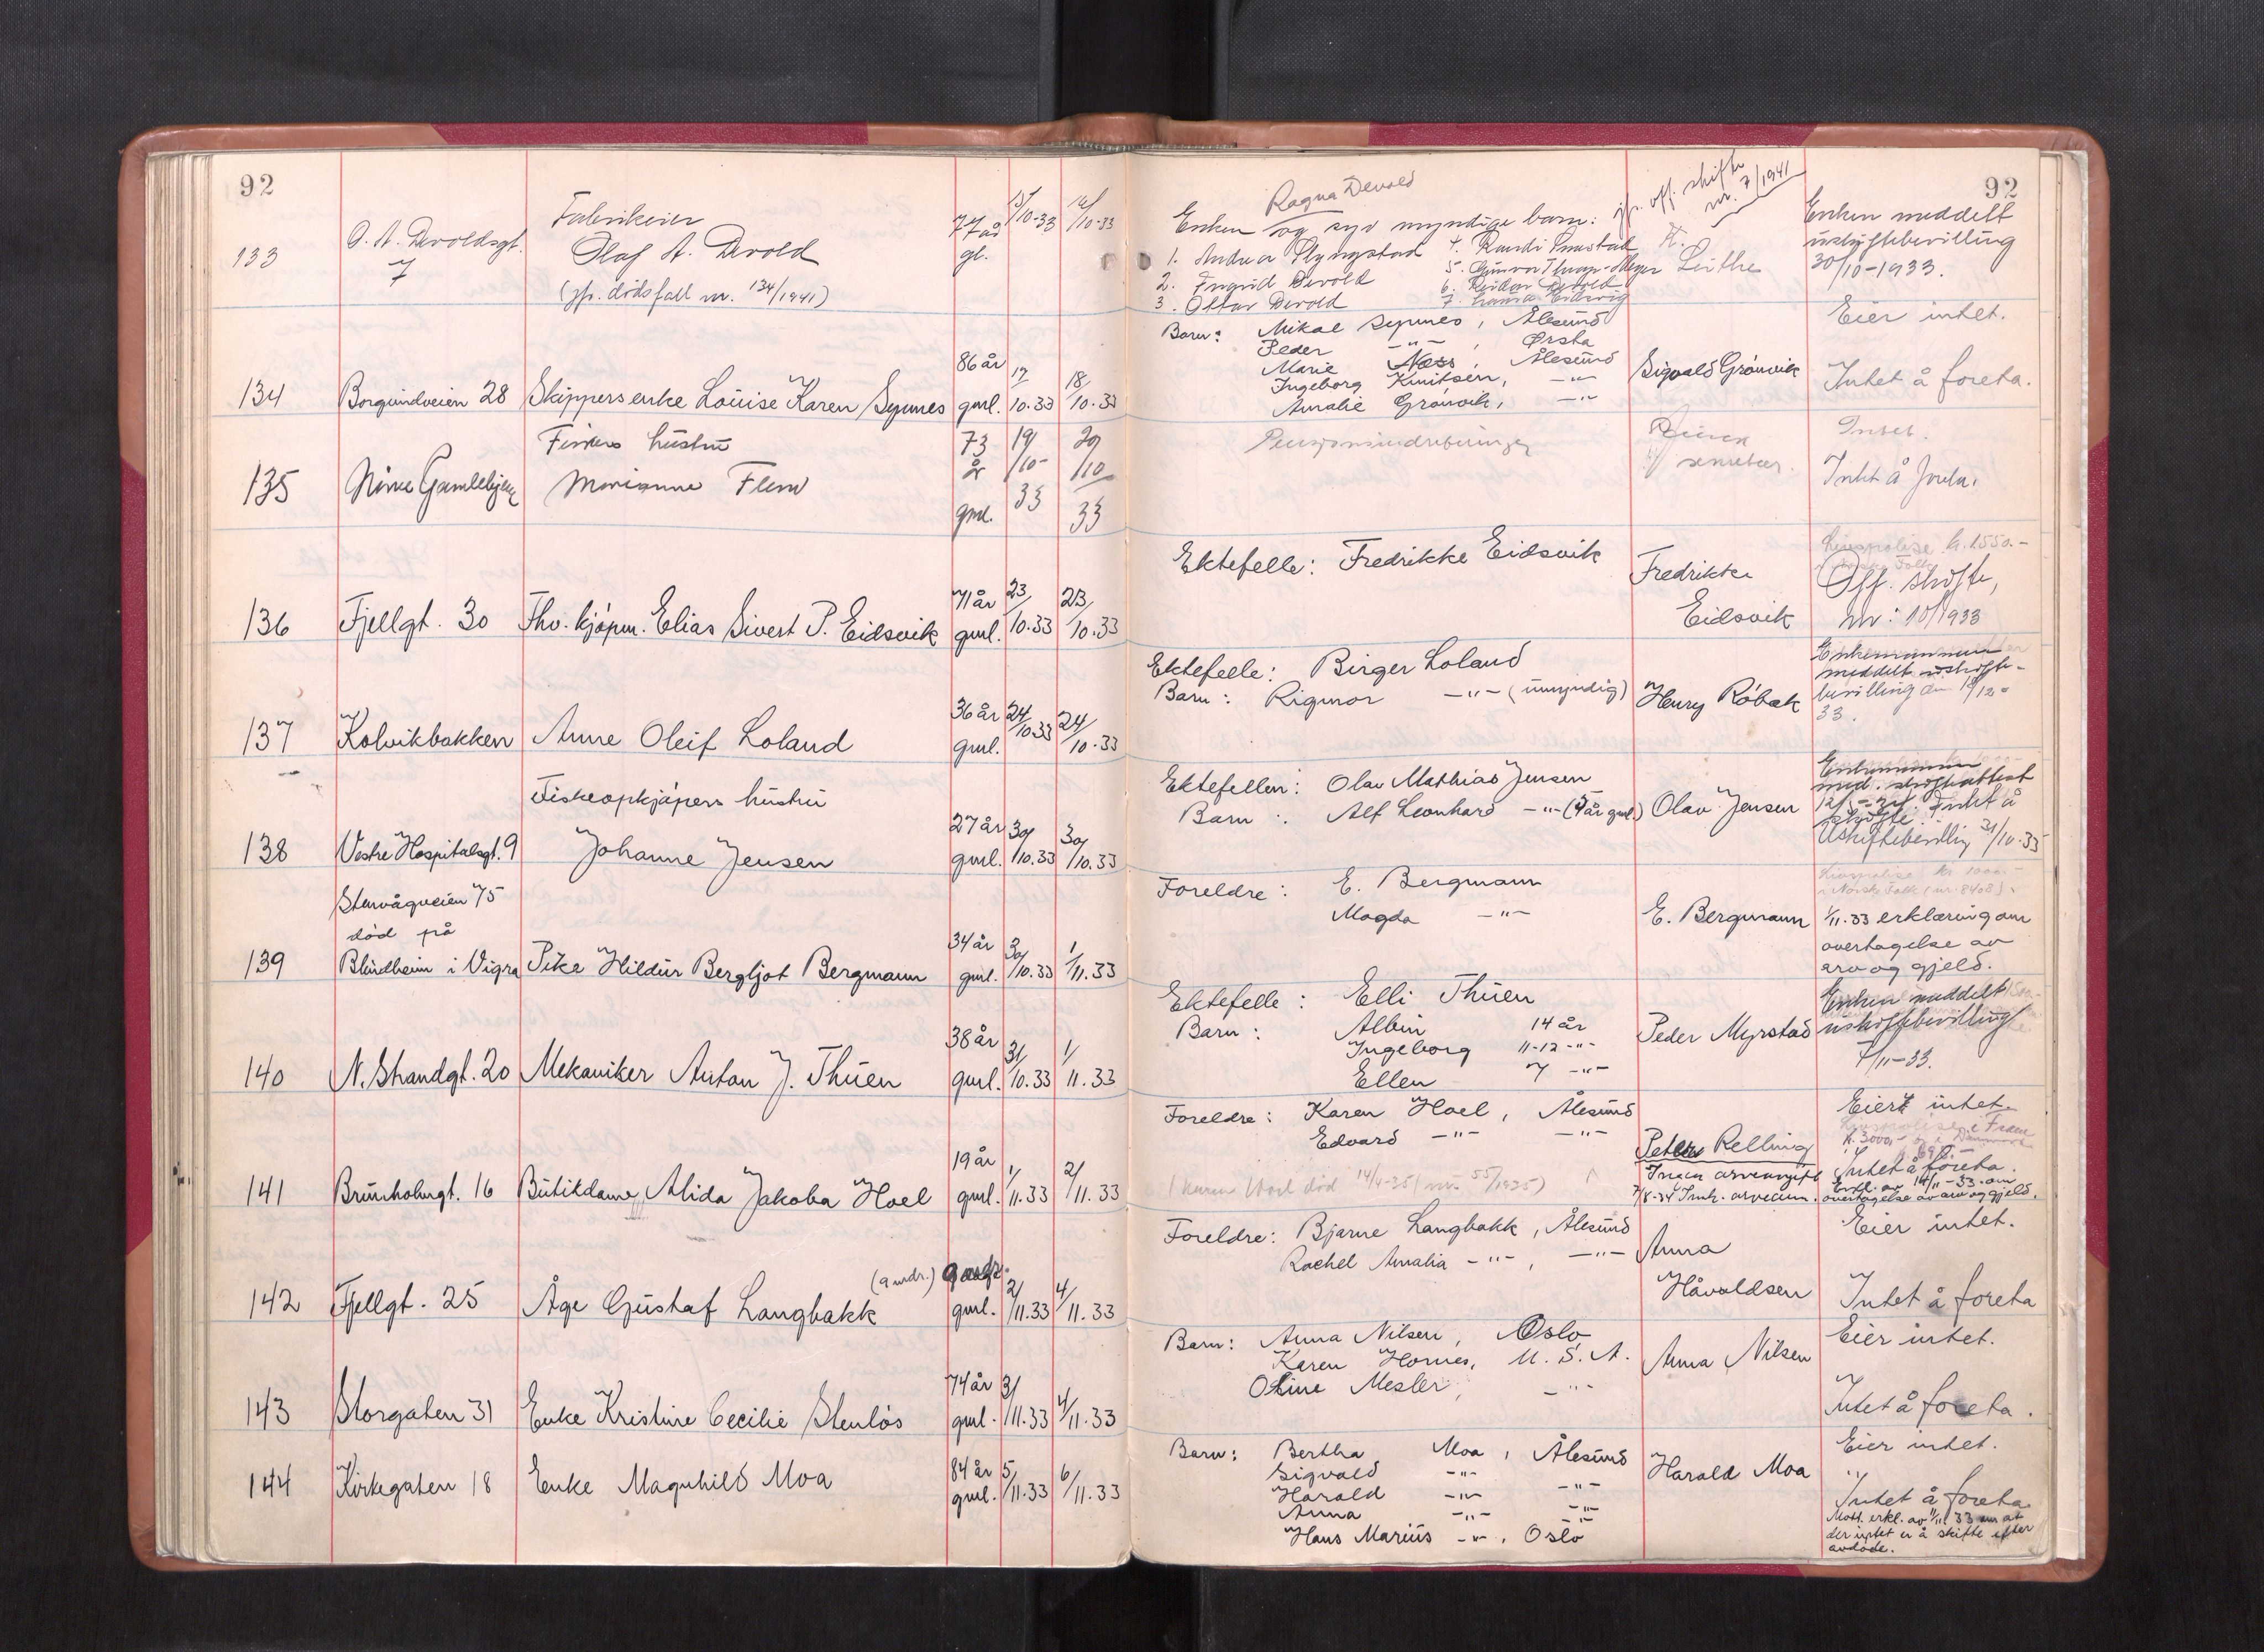 92
92
133
O. A. Devoldsgt. 7
Fabrikeier
Olaf A. Devold
(jfr. dødsfall nr. 134/1941)
77 år gl.
15/10-33
16/10-33
Ragna Devold
Enken og syv myndige barn:
jfr. off. skifte nr. 7/1941
1. Andrea Slyngstad
4. Randi
2. Ingrid Devold
5. Gunvor
3. Ottar Devold
6. Reidar Devold
7. Laura
Enken meddelt
uskiftebevilling
30/10-1933.
134
Borgundveien 28
Skippersenke Louise Karen Synnes
86 år gml.
17/10.33
18/10.33
Barn: Mikal Synnes, Ålesund
Peder -"-, Ørsta
Marie Næss, Ålesund
Ingeborg Knutsen, -"-
Amalie Grønvik, -"-
Sigvald Grønvik
Eier intet.
Intet å foreta.
135
Nørve Gamlehjem
Fiskers hustru
Marianne Flem
73 år gml.
19/10-33
20/10 33
Intet.
Intet å foreta.
136
Fjellgt. 30
Fhv. kjøpm. Elias Sivert P. Eidsvik
71 år gml.
23/10.33
23/10.33
Ektefelle: Fredrikke Eidsvik
Fredrikke
Eidsvik
Livspolise kr. 1550.-
Off. skifte,
nr: 10/1933
137
Kolvikbakken
Anne Oleif Loland
36 år gml.
24/10.33
24/10.33
Ektefelle: Birger Loland
Barn: Rigmor -"- (umyndig)
Henry Røbak
Enkemannen
meddelt uskifte-
bevilling
33.
138
Vestre Hospitalsgt. 9
Fiskeopkjøpers hustru
Johanne Jensen
27 år gml.
30/10.33
30/10.33
Ektefellen: Olav Mathias Jensen
Barn: Alf Leonhard -"- (4 år gml.)
Olav Jensen
Enkemannen
med. skifteattest
Intet å
skifte.
Uskiftebevilling 31/10-33
139
Stenvågveien 75
død på
Blindheim i Vigra
Pike Hildur Bergljot Bergmann
34 år gml.
30/10.33
1/11.33
Foreldre: E. Bergmann
Magda -"-
E. Bergmann
Livspolise kr 1000.-
i Norske Folk (nr. 8408).
1/11.33 erklæring om
overtagelse av
arv og gjeld.
140
N. Strandgt. 20
Mekaniker Anton J. Thuen
38 år gml.
31/10.33
1/11.33
Ektefelle: Elli Thuen
Barn: Albin 14 år
Ingeborg 11-12 -"-
Ellen 7 -"-
Peder Myrstad
Enken meddelt
uskiftebevilling
7/11-33.
141
Brunholmgt. 16
Butikdame Alida Jakoba Hoel
19 år gml.
1/11.33
2/11.33
Foreldre: Karen Hoel, Ålesund
Edvard -"- -"-
(Karen Hoel død 14/4-35 (nr. 55/1935)
Petra Relling
Ingen arveavgift
7/8-34
Eiert intet.
Intet å foreta.
Erkl. av 14/11-33 om
overtagelse av arv og gjeld.
142
Fjellgt. 25
Åge Gustaf Langbakk
(9 mdr.)
gml.
2/11.33
4/11.33
Foreldre: Bjarne Langbakk, Ålesund
Rachel Amalia -"-, -"-
Anna
Håvoldsen
Eier intet.
Intet å foreta
143
Storgaten 31
Enke Kristine Cecilie Stenløs
74 år gml.
3/11.33
4/11.33
Barn: Anna Nilsen, Oslo
Karen Hornes, U. S. A.
Oline Mesler, -"-
Anna Nilsen
Eier intet.
Intet å foreta.
144
Kirkegaten 18
Enke Magnhild Moa
84 år gml.
5/11.33
6/11.33
Barn: Bertha Moa, Ålesund
Sigvald -"-
Harald -"- -"-
Anna -"- -"-
Hans Marius -"-, Oslo
Harald Moa
Eier intet.
Intet å foreta
Mott. erkl. av 11/11 33 om at
der intet er å skifte efter
avdøde.